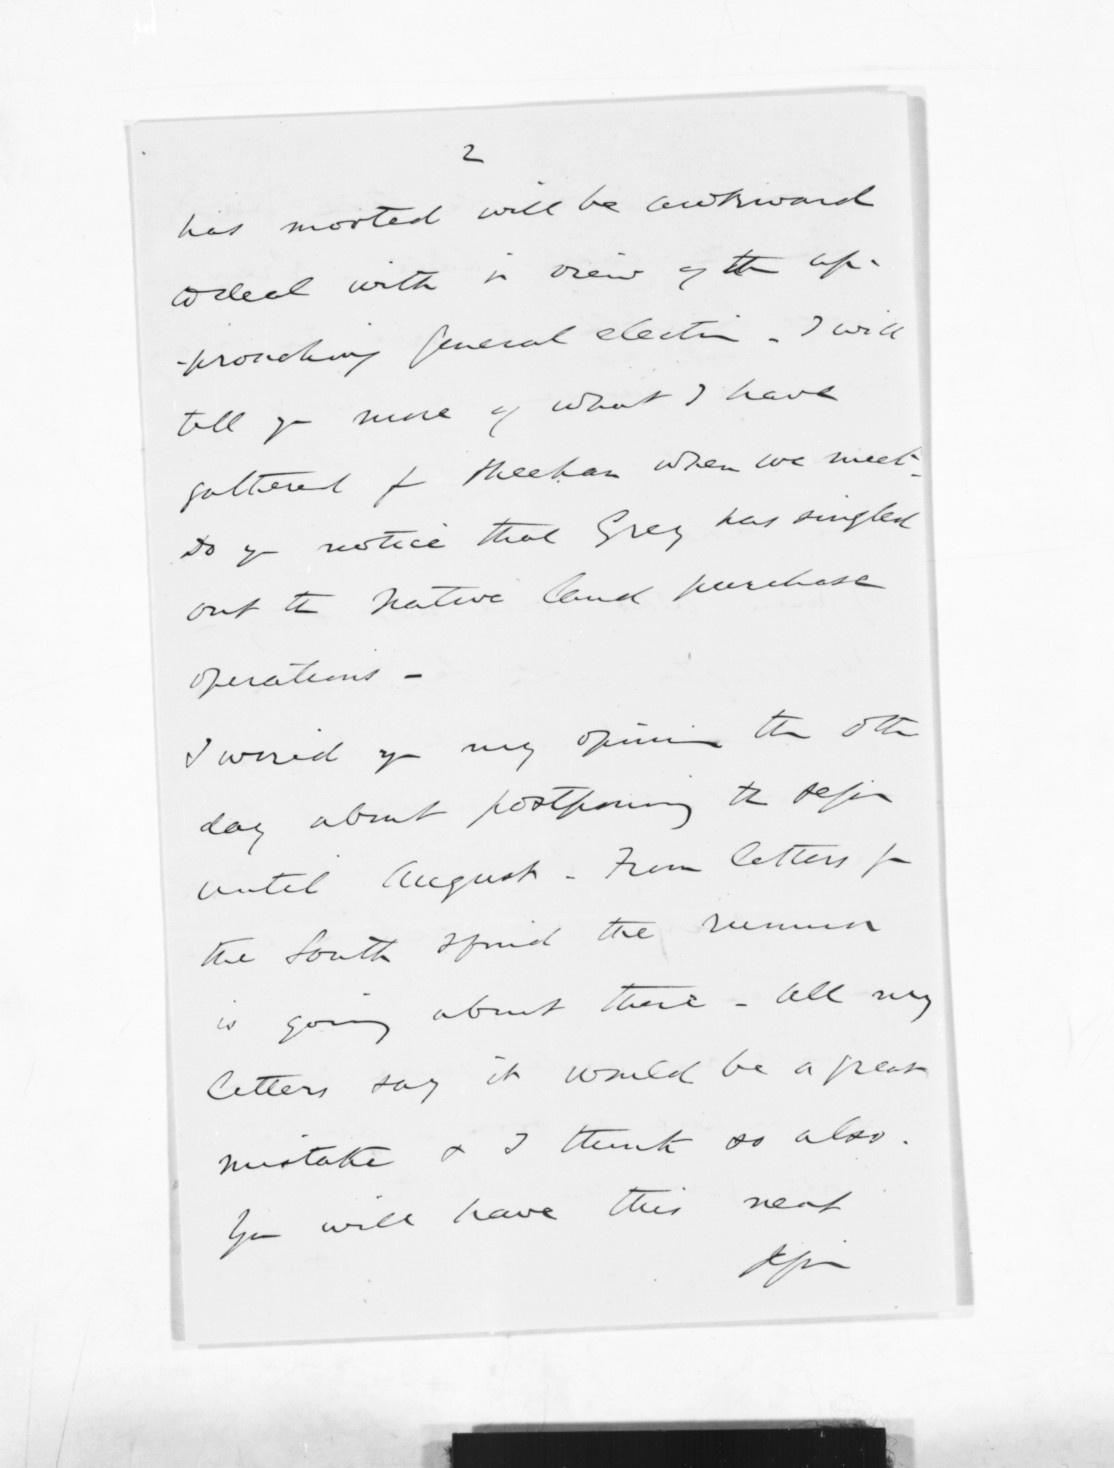 2
has mooted will be awkward
to deal with in view of the ap-
-proaching general election - I will
tell yu more of what I have
gathered fr Sheehan when we meet -
Do yu notice that Grey has singled
out the Native Land purchase
operations -
I wired yu my opinion the other
day about postponing the session
until August - From letters fr
the South I find the rumour
is going about there - All my
letters say it would be a great
mistake & I think so also.
You will have this next
session